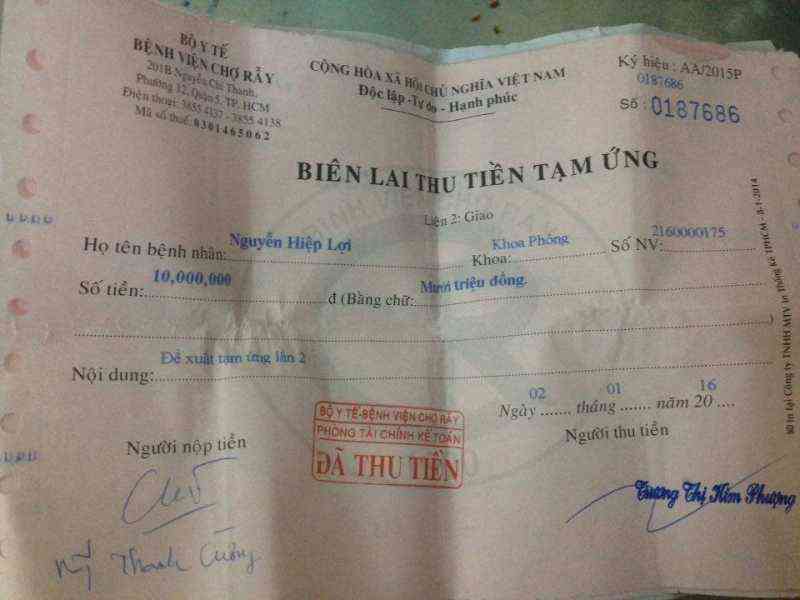 BỘ Y TẾ
BỆNH VIỆN CHỢ RẪY
201B Nguyễn Chí Thanh,
Phường 12, Quận 5, TP. HCM
Điện thoại: 3855 4137 - 3855 4138
Mã số thuế: 0301465062
CỘNG HÒA XÃ HỘI CHỦ NGHĨA VIỆT NAM
Độc lập - Tự do - Hạnh phúc
Ký hiệu : AA/2015P
0187686
Số : 0187686
BIÊN LAI THU TIỀN TẠM ỨNG
Liên 2: Giao
Họ tên bệnh nhân: Nguyễn Hiệp Lợi Khoa: Khoa Phòng Số NV: 2160000175
Số tiền: 10,000,000 đ (Bằng chữ: Mười triệu đồng.
)
Nội dung: Đề xuất tạm ứng lần 2
Ngày 02 tháng 01 năm 2016
Người nộp tiền
Người thu tiền
BỘ Y TẾ-BỆNH VIỆN CHỢ RẪY
PHÒNG TÀI CHÍNH KẾ TOÁN
ĐÃ THU TIỀN
Trương Thị Kim Phượng
Thanh Cường
in tại Công ty TNHH MTV In Thống Kê TPHCM - 8-1-2014